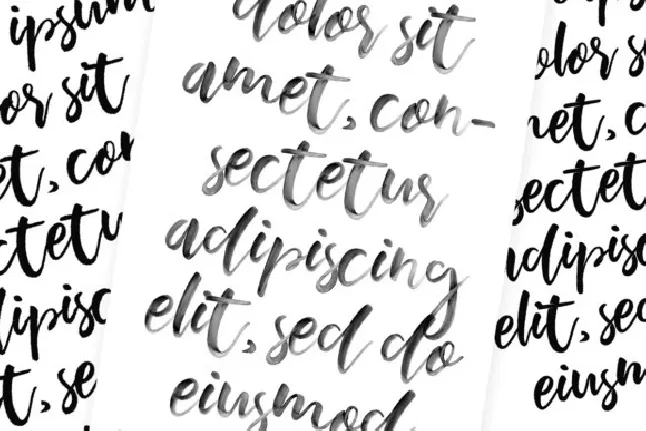 ipsum
or sit
et, con
ctetu
dipisc
t, se
dolor sit
amet, con-
sectetur
adipiscing
elit, sed do
eiusmod
olor s
et, c
sectet
adipisc
elit, sed
eiusm